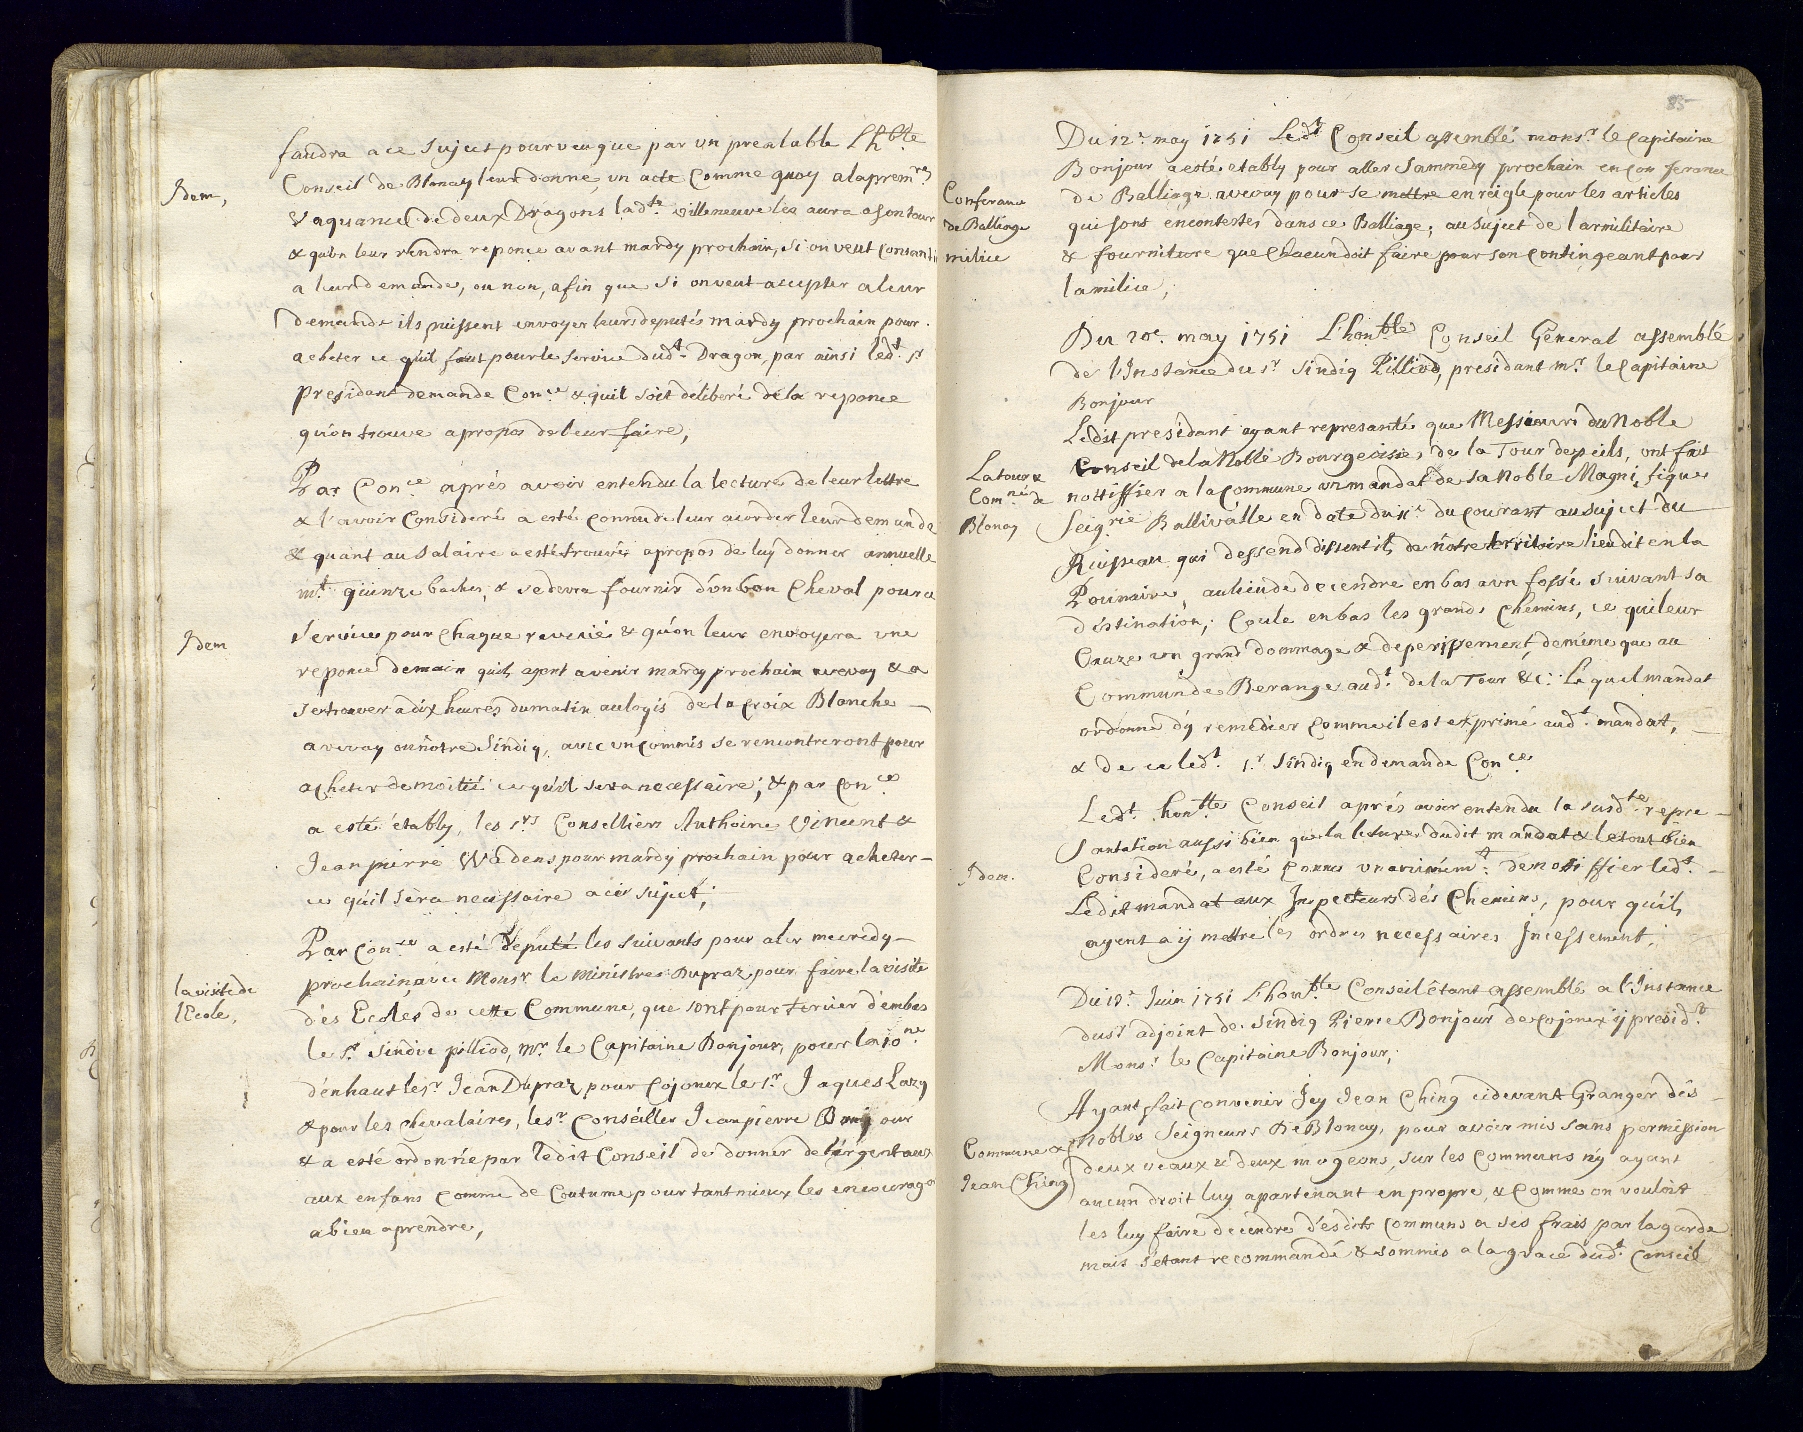 faudra a ce sujet pourveu que par un prealable L'hble
Idem,
Conseil de Blonay leur donne, un acte Comme quoy a la premre
vaquance de deux Dragons ladte villeneuve les aura a son tour
& qu'on leur rendra reponce avant mardy prochain, si on veut consanti
a leur demande, ou non, afin que si on veut accepter a leur
demande ils puissent envoyer leurs deputés mardy prochain pour
acheter ce quil faut pour le service dudt Dragon, par ainsi ledt sr
president demande Conce & quil soit déliberé de la reponce
qu'on trouve a propos de leur faire,
Par Conce aprés avoir entendu la lecture de leur lettre
& l'avoir Consideré a esté Connu de leur acorder leur demande
& quant au salaire a esté trouvés a propos de luy donner annuelle
mt quinze baches, & se devra fournir d'un bon Cheval pour ce
Idem
service pour chaque reveuë & qu'on leur envoyera une
reponce demain quils ayent a venir mardy prochain a vevay & a
se trouver a dix heures du matin au logis de la Croix Blanche
a vevay ou nôtre sindiq, avec un commis se rencontreront pour
acheter de moitié ce qu'il sera necessaire; & par Conce
a esté étably, les srs Conselliers Anthoine Vincent &
Jean pierre Wadens pour mardy prochain pour acheter
ce qu'il sera necessaire a ce sujet;
Par Conce a esté deputé les suivants pour aler mecredy
la visite de
l'Ecole,
prochain avec Monsr le Ministres Dupraz pour faire la visite
dés Ecoles de cette Commune, que sont pour tercier d'embas
le sr Sindic pilliod, Mr le Capitaine Bonjour, pour laione
d'enhaut le sr Jean Dupraz pour Cojonex le sr Jaques Lazy
& pour les Chevalaires, le sr Conséiller Jean pierre Bonjour
& a esté ordonnée par ledit Conseil de donner de l'argent aux
aux enfans Comme de Coutume pour tant mieux les encourager
a bien aprendre,
85
Du 12e may 1751 Ledt Conseil assemblé monsr le Capitaine
Bonjour a esté, etably pour aller Sammedy prochain en conferance
Conferance
de Balliage
milice
de Balliage a vevay pour se mettre en reigle pour les articles
qui sont en contestes dans ce Balliage; au sujet de l'armilitaire
& fourniture que Chacun doit faire pour son contingeant pour
la milice,
Du 20e may 1751 L'honble Conseil General assemblé
de l'Instance du sr Sindiq Pilliod, présidant mr le Capitaine
Bonjour
Ledit presidant ayant represanté que Messieurs du Noble
La tour &
Comné de
Blonay
Conseil de la Noble Bourgeoisie, de la Tour de peils, ont fait
nottiffier a la Commune un mandat de sa Noble Magnifique
Seigrie Ballivalle en date du 11e du courant au sujet du
Ruisseau qui dessend dissent ils de nôtre territoire lieudit en la
Pouinaire, au lieu de decendre en bas a un fossé suivant sa
déstination; Coule en bas les grands chemins, ce qui leur
Cauze un grand dommage & deperissement, de méme que au
Commun de Berange audt de la Tour &c. Lequel mandat
ordonne d'y remedier comme il est exprimé audt mandat,
& de ce ledt sr Sindiq en demande Conce
Ledt honble Conseil aprés avoir entendu la susdte repre
santation aussi bien que la lecture dudit mandat & le tout bien
Idem.
Consideré, a esté Connu unanimemt de nottiffier ledt
Ledit mandat aux Inspecteurs dés Chemins, pour qu'ils
ayent a ÿ mettre les ordres necessaires Incessement;
Du 18e Juin 1751 L'honble Conseil étant assemblé a l'Instance
du sr adjoint de Sindiq Pierre Bonjour de cojonex ÿ presidt
Monsr le Capitaine Bonjour;
Ayant fait convenir Icy Jean Ching cidevant Granger dés
Commune &
Jean Ching
Nobles Seigneurs De Blonay, pour avoir mis sans permission
deux veaux & deux mogeons, sur les Communs n'y ayant
aucun droit luy apartenant en propre, & Comme on vouloit
les luy faire decendre d'esdits Communs a ses frais par la garde
mais s'étant recommandé & sommis a la grace dudt Conseil